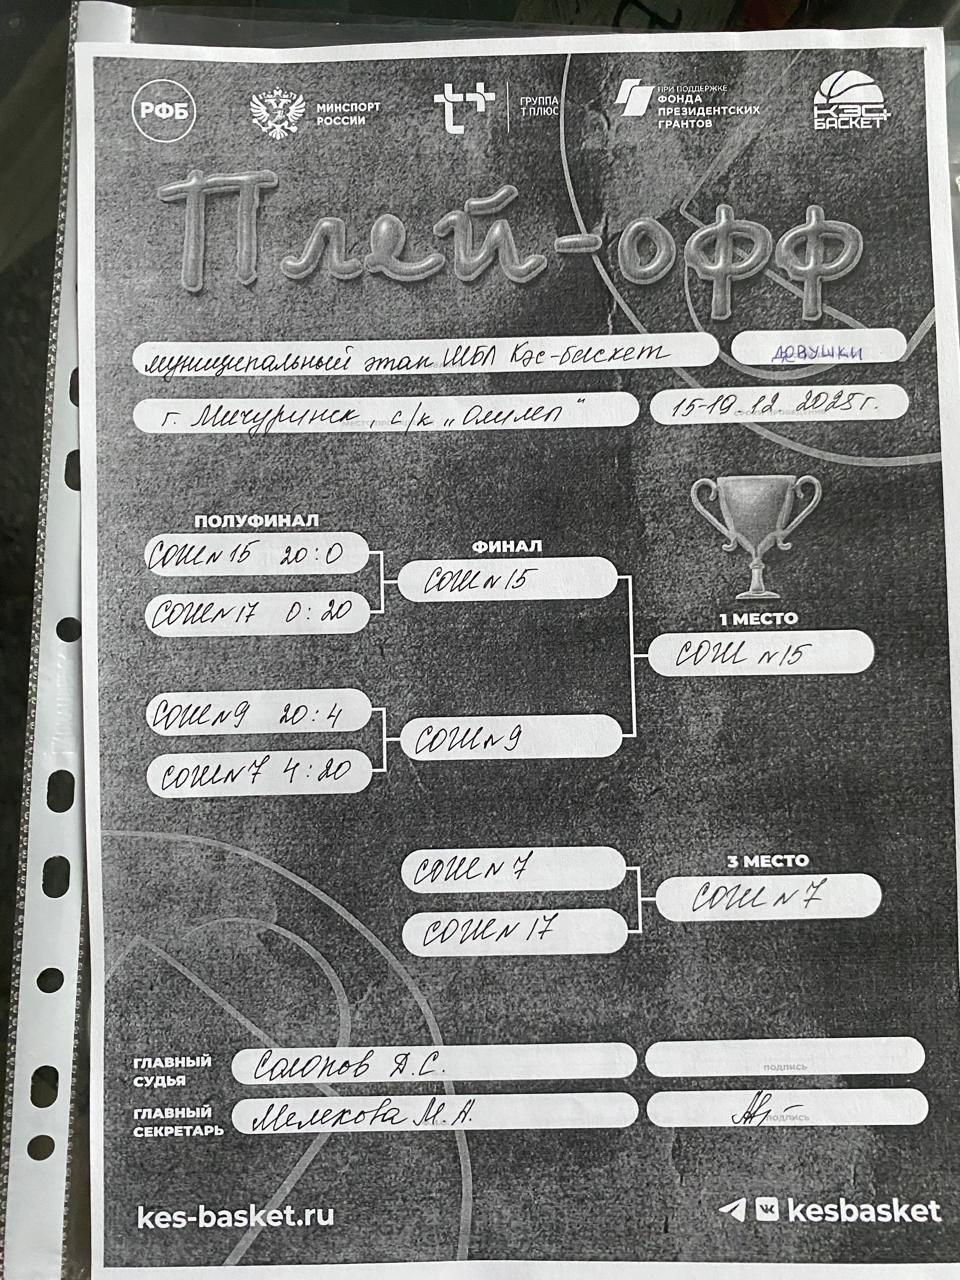 РФБ
МИНСПОРТ
РОССИИ
ГРУППА
Т ПЛЮС
ПРИ ПОДДЕРЖКЕ
ФОНДА
ПРЕЗИДЕНТСКИХ
ГРАНТОВ
КЭС
БАСКЕТ
Плей-офф
муниципальный этап ШБЛ Кэс-баскет
ДЕВУШКИ
г. Мичуринск, с/к „Олимп"
15-19.12.2025г.
ПОЛУФИНАЛ
СОШ№15 20:0
СОШ№17 0:20
СОШ№9 20:4
СОШ№7 4:20
ФИНАЛ
СОШ№15
СОШ№9
1 МЕСТО
СОШ №15
СОШ№7
СОШ№17
3 МЕСТО
СОШ№7
ГЛАВНЫЙ
СУДЬЯ
Солопов Д.С.
подпись
ГЛАВНЫЙ
СЕКРЕТАРЬ
М.А.
подпись
kes-basket.ru
kesbasket